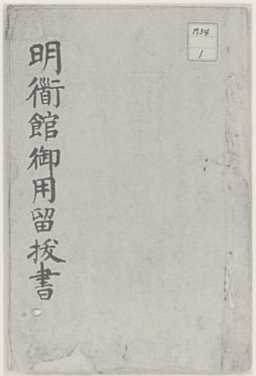 明衟館御用留抜書
1734
1